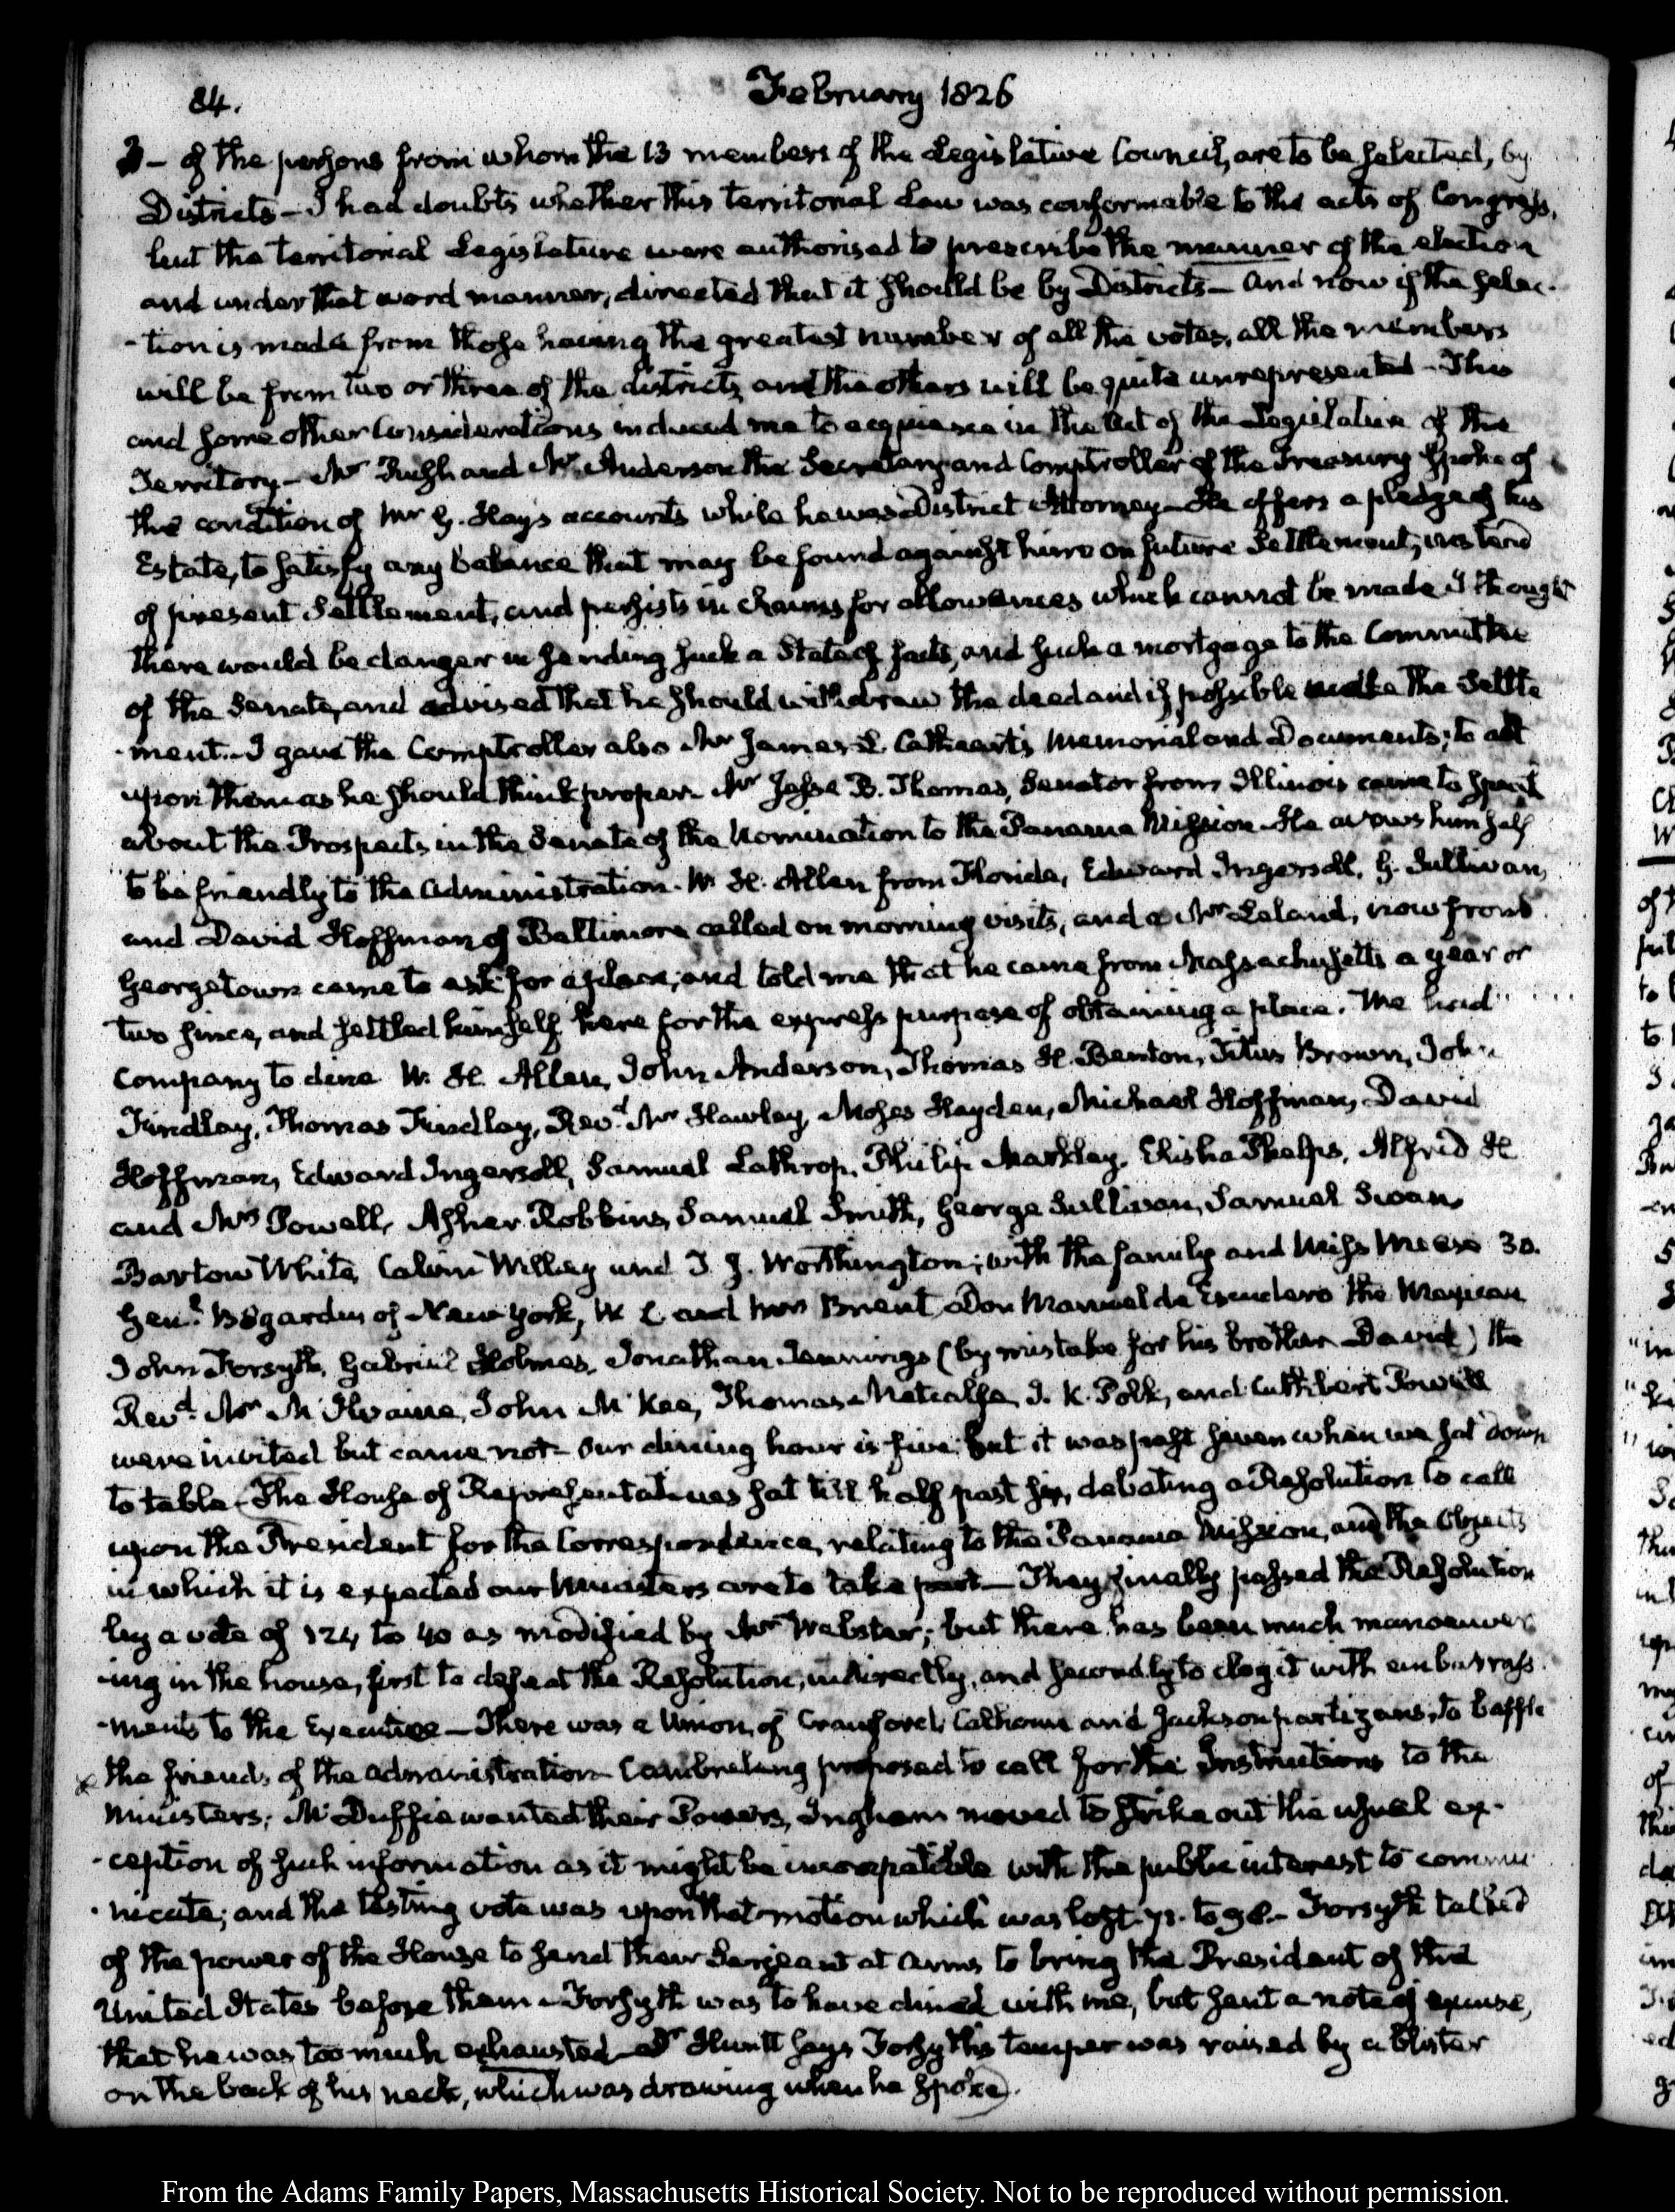 84.
February 1826
3 – of the persons from whom the 13 members of the Legislative Council, are to be selected, by
Districts – I had doubts whether this territorial Law was conformable to the acts of Congress,
but the territorial Legislature were authorised to prescribe the manner of the election
and under that word manner, directed that it should be by Districts – And now if the selec-
-tion is made from those having the greatest number of all the votes, all the members
will be from two or three of the districts, and the others will be quite unrepresented – This
and some other Considerations induced me to acquiesce in the Act of the Legislature of the
Territory – Mr Rush and Mr Anderson the Secretary and Comptroller of the Treasury spoke of
the condition of Mr G. Hays accounts while he was District Attorney – He offers a pledge of his
Estate, to satisfy any balance that may be found against him on future Settlement, instead
of present Settlement, and persists in claims for allowances which cannot be made I thought
there would be danger in sending such a State of facts, and such a mortgage to the Committee
of the Senate, and advised that he should withdraw the deed and if possible make the Settle
-ment. I gave the Comptroller also Mr James L. Cathcart's Memorial and Documents; to act
upon them as he should think proper. Mr Jesse B. Thomas, Senator from Illinois came to speak
about the Prospects in the Senate of the Nomination to the Panama Mission. He avows himself
to be friendly to the Administration. W. H. Allen from Florida, Edward Ingersoll, G. Sullivan,
and David Hoffman of Baltimore called on morning visits, and a Mr Leland, now from
Georgetown came to ask for a place; and told me that he came from Massachusetts a year or
two since, and settled himself here for the express purpose of obtaining a place. We had
Company to dine W. H. Allen, John Anderson, Thomas H. Benton, Titus Brown, John
Findlay, Thomas Findlay, Revd. Mr Hawley, Moses Hayden, Michael Hoffman, David
Hoffman, Edward Ingersoll, Samuel Lathrop, Philip Markley, Elisha Phelps, Alfred H
and Mrs Powell, Asher Robbins, Samuel Smith, George Sullivan, Samuel Swan,
Bartow White, Calvin Willey and T. G. Worthington; with the family and Miss Mease 30.
Genl. Bogardus of New York, W. L and Mrs Brent Don Manuel de Escudero the Mexican
John Forsyth, Gabriel Holmes, Jonathan Jennings (by mistake for his brother David) the
Revd. Mr McIlvaine, John McKee, Thomas Metcalfe, J. K. Polk, and Cuthbert Powell
were invited but came not – Our dining hour is five, but it was past seven when we sat down
to table – (The House of Representatives sat till half past six, debating a Resolution to call
upon the President for the Correspondence, relating to the Panama Mission, and the Objects
in which it is expected our Ministers are to take part – They finally passed the Resolution
by a vote of 124 to 40 as modified by Mr Webster; but there has been much manoeuver
-ing in the house, first to defeat the Resolution, indirectly, and secondly to clog it with embarrass
-ments to the Executive – There was a Union, of Crawford, Calhoun and Jackson partizans, to baffle
x the friends of the administration – Cambreleng proposed to call for the Instructions to the
Ministers; McDuffie wanted their Powers, Ingham moved to strike out the usual ex-
-ception of such information as it might be incompatible with the public interest to commu
-nicate; and the testing vote was upon that motion which was lost 71. to 98. – Forsyth talked
of the power of the House to send their Sergeant at Arms to bring the President of the
United States before them – Forsyth was to have dined with me, but sent a note of excuse,
that he was too much exhausted – Dr Huntt says Forsyth's temper was raised by a blister
on the back of his neck, which was drawing when he spoke).
From the Adams Family Papers, Massachusetts Historical Society. Not to be reproduced without permission.